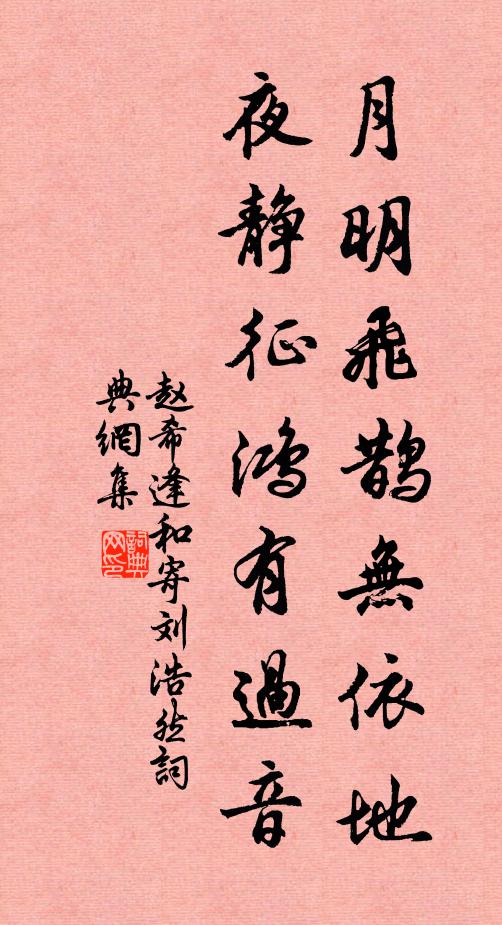 月明飛鵲無依地
夜静征鴻有過音
赵希逢和寄刘浩然詞
典網集
詞典网印